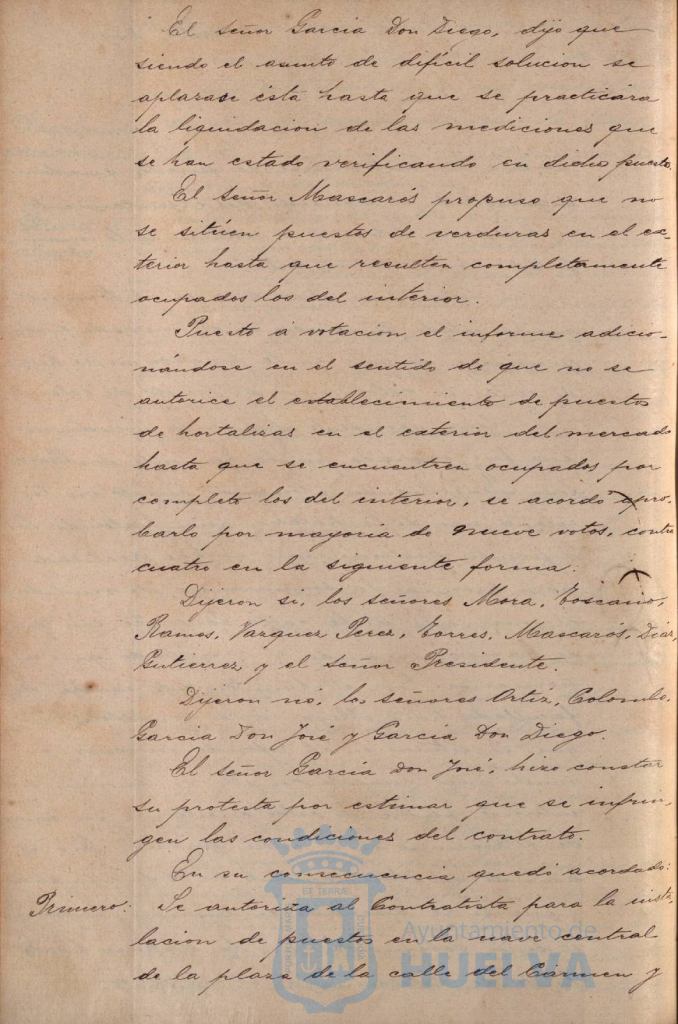 El señor Garcia Don Diego, dijo que
siendo el asunto de dificil solucion se
aplazase ésta hasta que se practicára
la liquidacion de las mediciones que
se han estado verificando en dicho puesto.
El señor Mascarós propuso que no
se sitúen puestos de verduras en el ex-
terior hasta que resulten completamente
ocupados los del interior.
Puesto á votacion el informe adicio-
nándose en el sentido de que no se
autorice el establecimiento de puestos
de hortalizas en el exterior del mercado
hasta que se encuentren ocupados por
completo los del interior, se acordó apro-
barlo por mayoria de nueve votos, contra
cuatro en la siguiente forma:
Dijeron si, los señores Mora, Toscano,
Ramos, Vazquez Perez, Torres, Mascarós, Diaz,
Gutierrez y el señor Presidente.
Dijeron nó, los señores Ortíz, Colombo,
Garcia Don José y Garcia Don Diego.
El señor Garcia Don José, hizo constar
su protesta por estimar que se infrin-
gen las condiciones del contrato.
En su consecuencia quedó acordado:
Primero: Se autoriza al Contratista para la insta-
lacion de puestos en la nave central
de la plaza de la calle del Cármen y
Ayuntamiento de
HUELVA